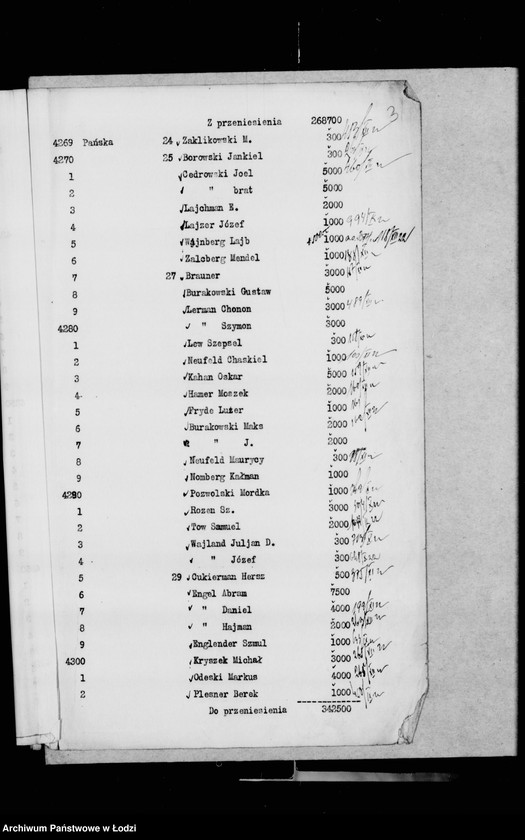 3
Z przeniesienia 268700
4269 Pańska 24 Zaklikowski M. 300
4270 25 Borowski Jankiel 300
1 Cedrowski Joel 5000
2 " brat 5000
3 Lajchman E. 2000
4 Lajzer Józef 1000
5 Wajnberg Lajb 1000
6 Zalcberg Mendel 1000
7 27 Brauner 3000
8 Burakowski Gustaw 5000
9 Lerman Chonon 3000
4280 " Szymon 3000
1 Lew Szepsel 300
2 Neufeld Chaskiel 1000
3 Kahan Oskar 5000
4 Hamer Moszek 2000
5 Fryde Luzer 1000
6 Burakowski Maks 2000
7 " J. 2000
8 Neufeld Maurycy 300
9 Nomberg Kałman 1000
4290 Pozwolski Mordka 1000
1 Rozen Sz. 3000
2 Tow Samuel 2000
3 Wajland Juljan D. 300
4 " Józef 300
5 29 Cukierman Hersz 500
6 Engel Abram 7500
7 " Daniel 4000
8 " Hajman 2000
9 Englender Szmul 1000
4300 Kryszek Michał 3000
1 Odeski Markus 4000
2 Plesner Berek 1000
Do przeniesienia 343500
Archiwum Państwowe w Łodzi